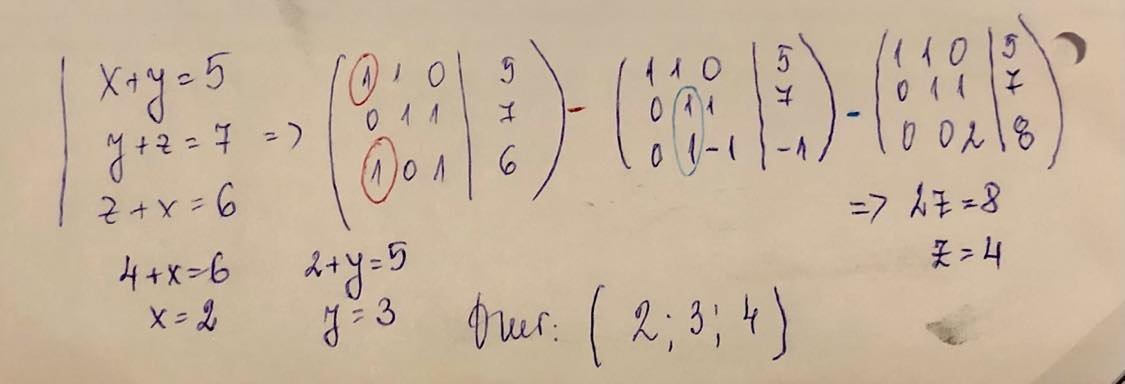 x+y=5
y+z=7 =>
z+x=6
( 1 1 0 | 5 )
( 0 1 1 | 7 )
( 1 0 1 | 6 )
-
( 1 1 0 | 5 )
( 0 1 1 | 7 )
( 0 1 -1 | -1 )
-
( 1 1 0 | 5 )
( 0 1 1 | 7 )
( 0 0 2 | 8 )
=> 2z=8
z=4
4+x=6
x=2
2+y=5
y=3
( 2; 3; 4 )